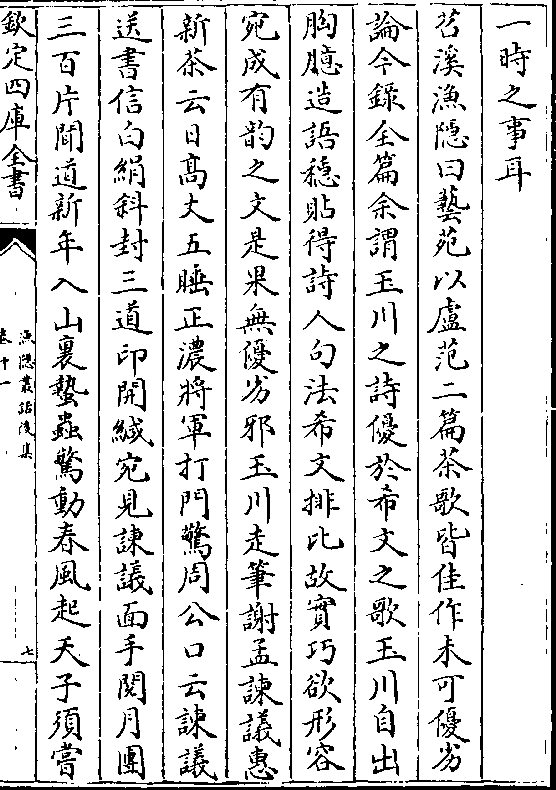 一時之事耳
苕溪漁隐曰藝苑以盧范二篇茶歌皆佳作未可優劣
論今録全篇余謂玉川之詩優於希文之歌玉川自出
胸臆造語穏貼得詩人句法希文排比故實巧欲形容
宛成有韵之文是果無優劣邪玉川走筆謝孟諫議惠
新茶云日髙丈五睡正濃將軍打門驚周公口云諫議
送書信白絹斜封三道印開緘宛見諫議面手閱月團
三百片聞道新年入山裏蟄蟲驚動春風起天子須嘗
欽定四庫全書
漁隠叢話後集
卷十一
七